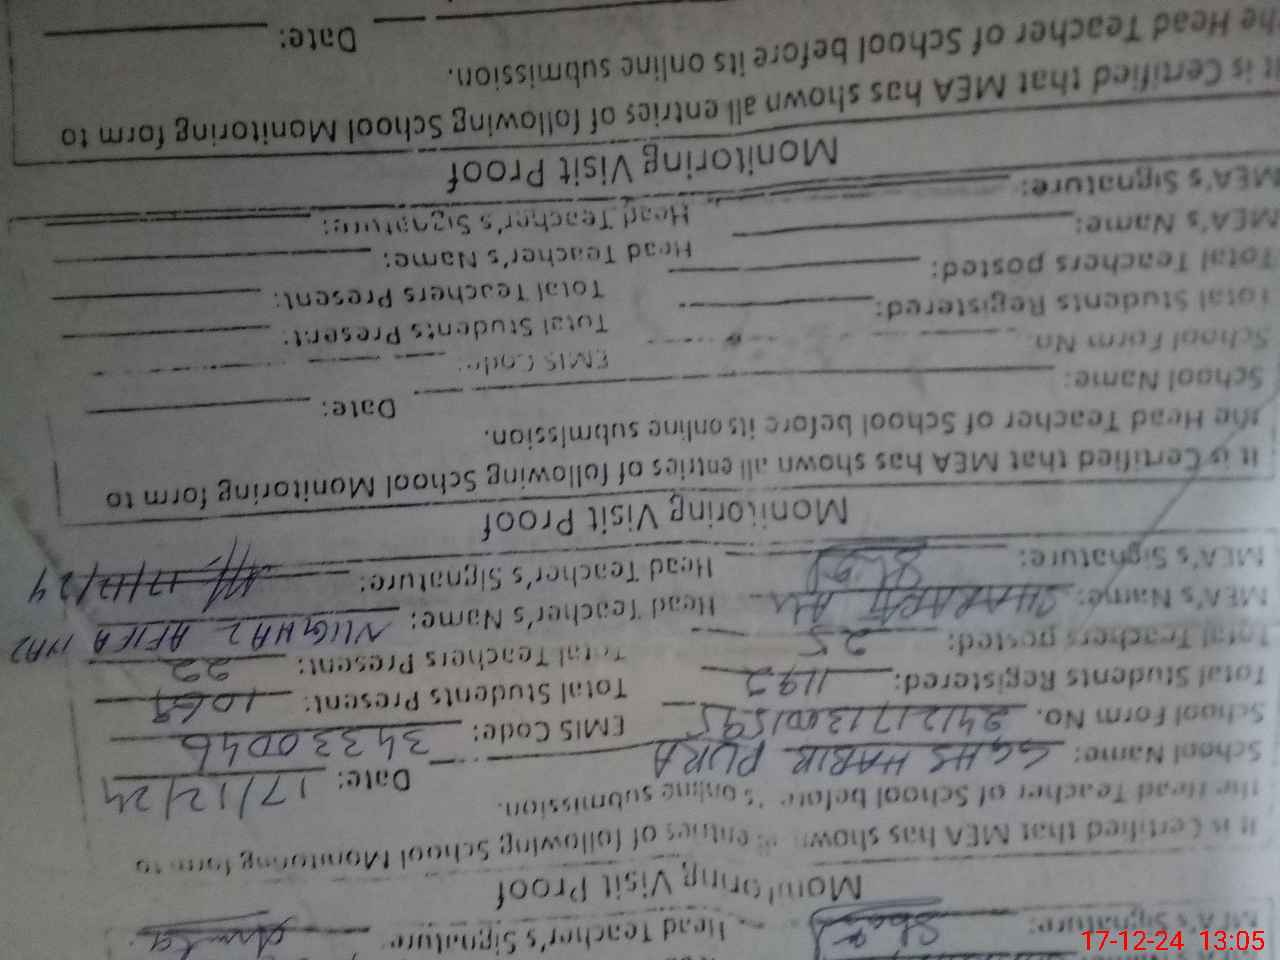 MEA's Signature: Head Teacher's Signature:
Monitoring Visit Proof
It is Certified that MEA has shown all entries of following School Monitoring form to
the Head Teacher of School before its online submission.
Date: 17/12/24
School Name: GGHS HABIB PURA
School Form No. 24121713001595 EMIS Code: 34330046
Total Students Registered: 1192 Total Students Present: 1069
Total Teachers posted: 25 Total Teachers Present: 22
MEA's Name: SHARAFAT ALI Head Teacher's Name: NUGHAZ AFIFA
MEA's Signature: Head Teacher's Signature: 17/12/24
Monitoring Visit Proof
It is Certified that MEA has shown all entries of following School Monitoring form to
the Head Teacher of School before its online submission.
Date:
School Name:
School Form No. EMIS Code:
Total Students Registered: Total Students Present:
Total Teachers posted: Total Teachers Present:
MEA's Name: Head Teacher's Name:
MEA's Signature: Head Teacher's Signature:
Monitoring Visit Proof
It is Certified that MEA has shown all entries of following School Monitoring form to
the Head Teacher of School before its online submission.
Date:
17-12-24 13:05